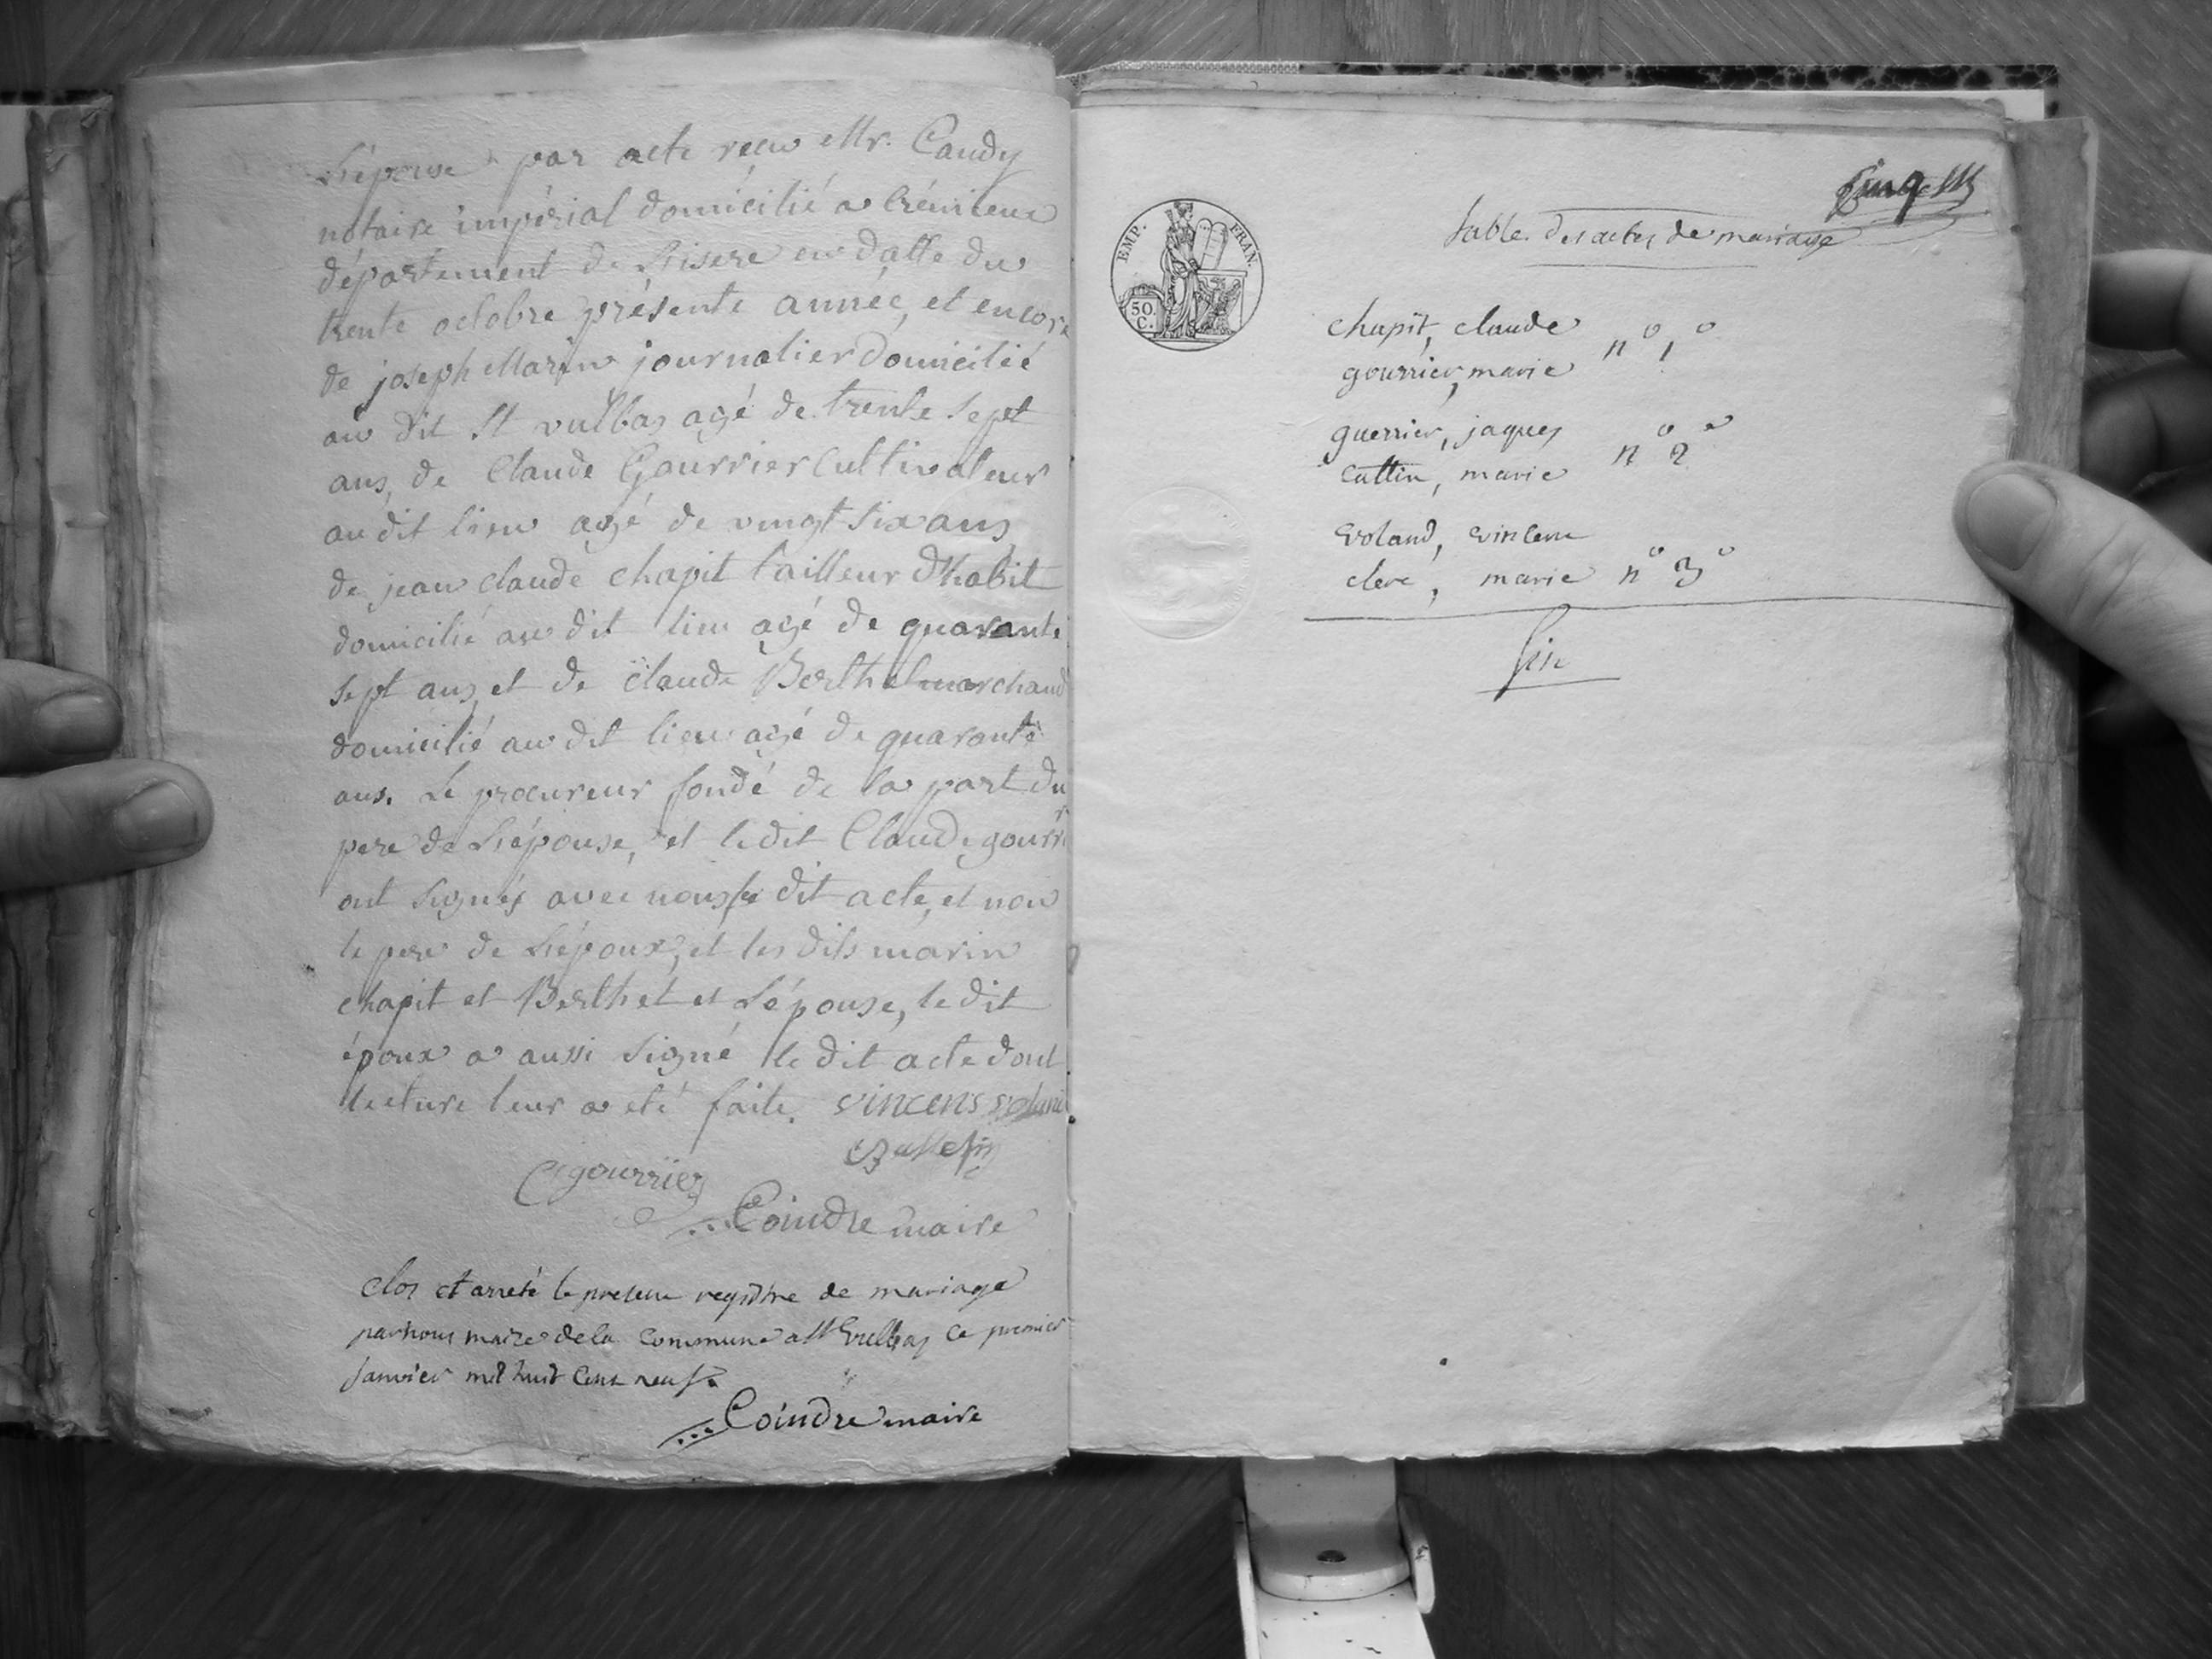 L'épouse par acte reçu Mr. Candy
notaire impérial domicilié a Crémieux
département de L'isere en datte du
trente octobre présente année, et encore
de joseph Marin journalier domicilié
au dit St vulbas agé de trente sept
ans, de Claude Gourrier Cultivateur
au dit lieu agé de vingt six ans
de jean claude chapit tailleur d'habit
domicilié au dit lieu agé de quarante
sept ans, et de claude Berthet marchand
domicilié au dit lieu agé de quarante
ans. Le procureur fondé de la part du
pere de L'épouse, et le dit Claude gourrier
ont signés avec nous le dit acte, et non
le pere de L'époux, et les dits marin
chapit et Berthet et L'épouse, le dit
époux a aussi signé le dit acte dont
lecture leur a eté faite. vincens voland
C gourrier
Coindre maire
clos et arreté le present registre de mariage
par nous maire de la Commune de St Vulbas ce premier
Janvier mil huit cent neuf.
Coindre maire
table des actes de mariage
EMP. FRAN.
50 C.
chapit, claude
gourrier, marie n° 1°
guerrier, jaques
Cattin, marie n° 2°
voland, vincent
clerc, marie n° 3°
fin